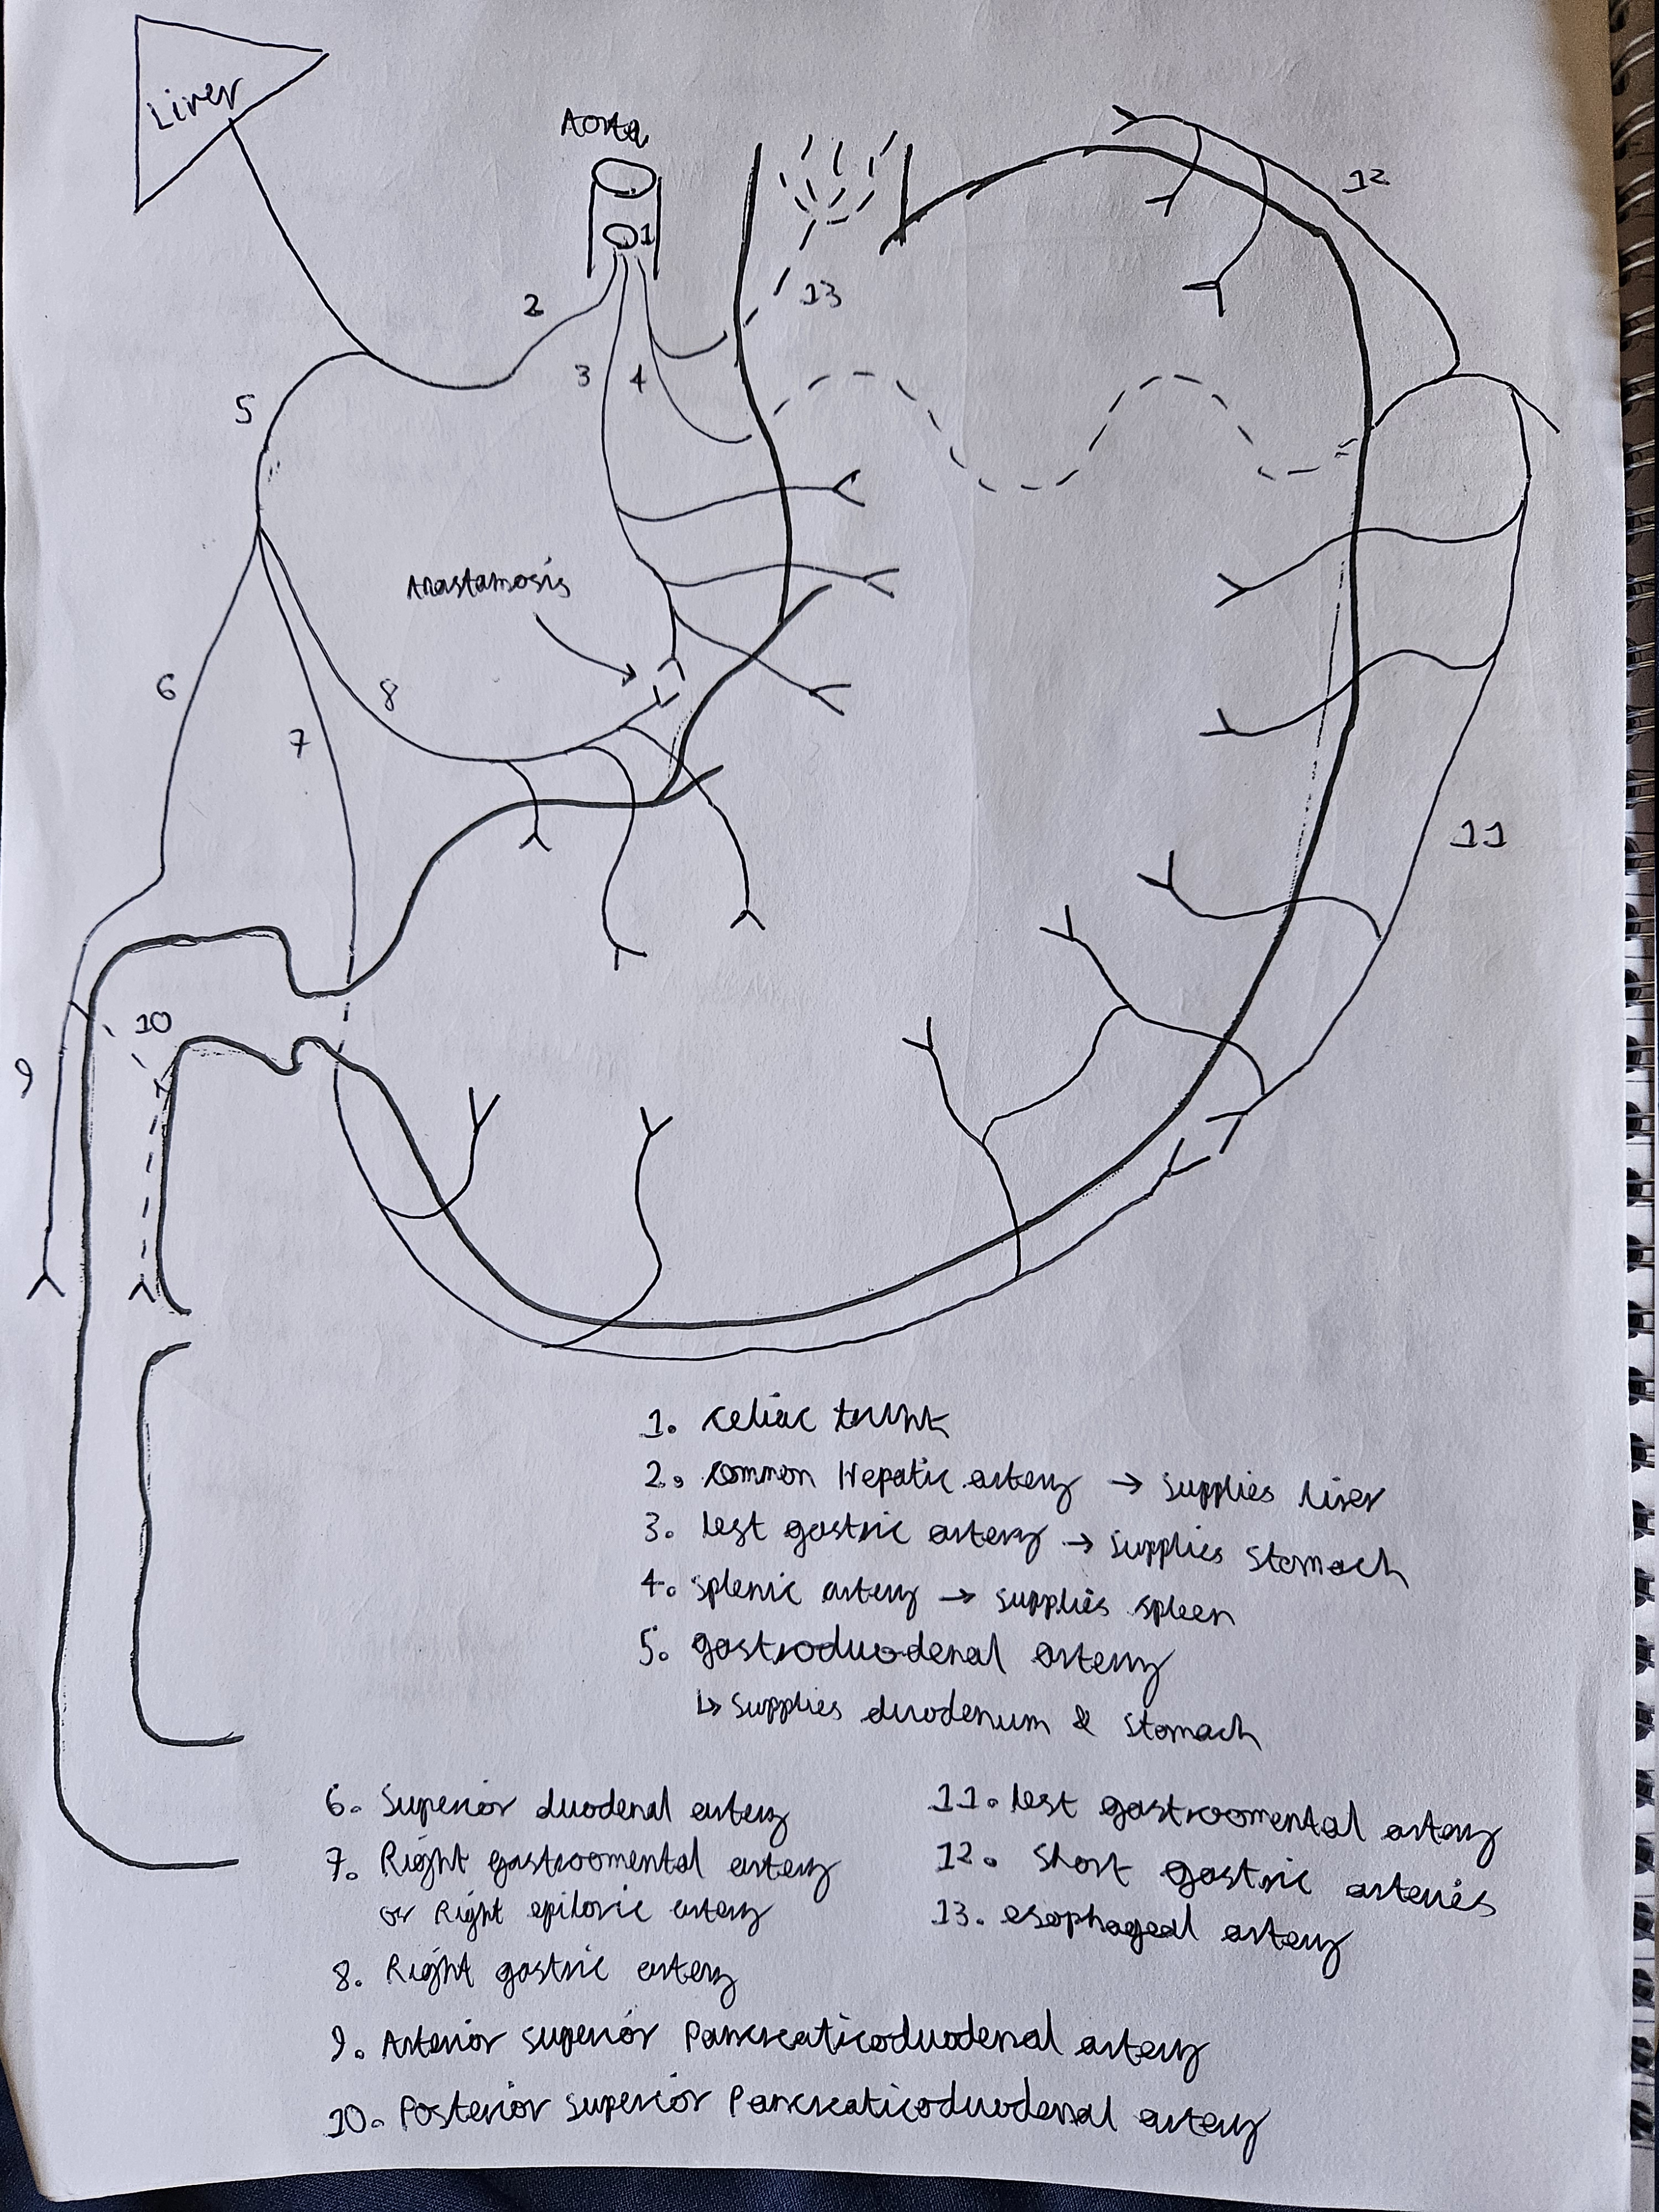 Liver
Aorta
1
12
2
13
3
4
5
Anastamosis
6
8
7
11
10
9
1. celiac trunk
2. common Hepatic artery → supplies liver
3. lest gastric artery → supplies stomach
4. splenic artery → supplies spleen
5. gastroduodenal artery
↳ supplies duodenum & stomach
6. Superior duodenal artery
7. Right gastroomental artery
or Right epiloric artery
8. Right gastric artery
9. Anterior superior Pancreaticoduodenal artery
10. Posterior superior Pancreaticoduodenal artery
11. lest gastroomental artery
12. short gastric arteries
13. esophageal artery